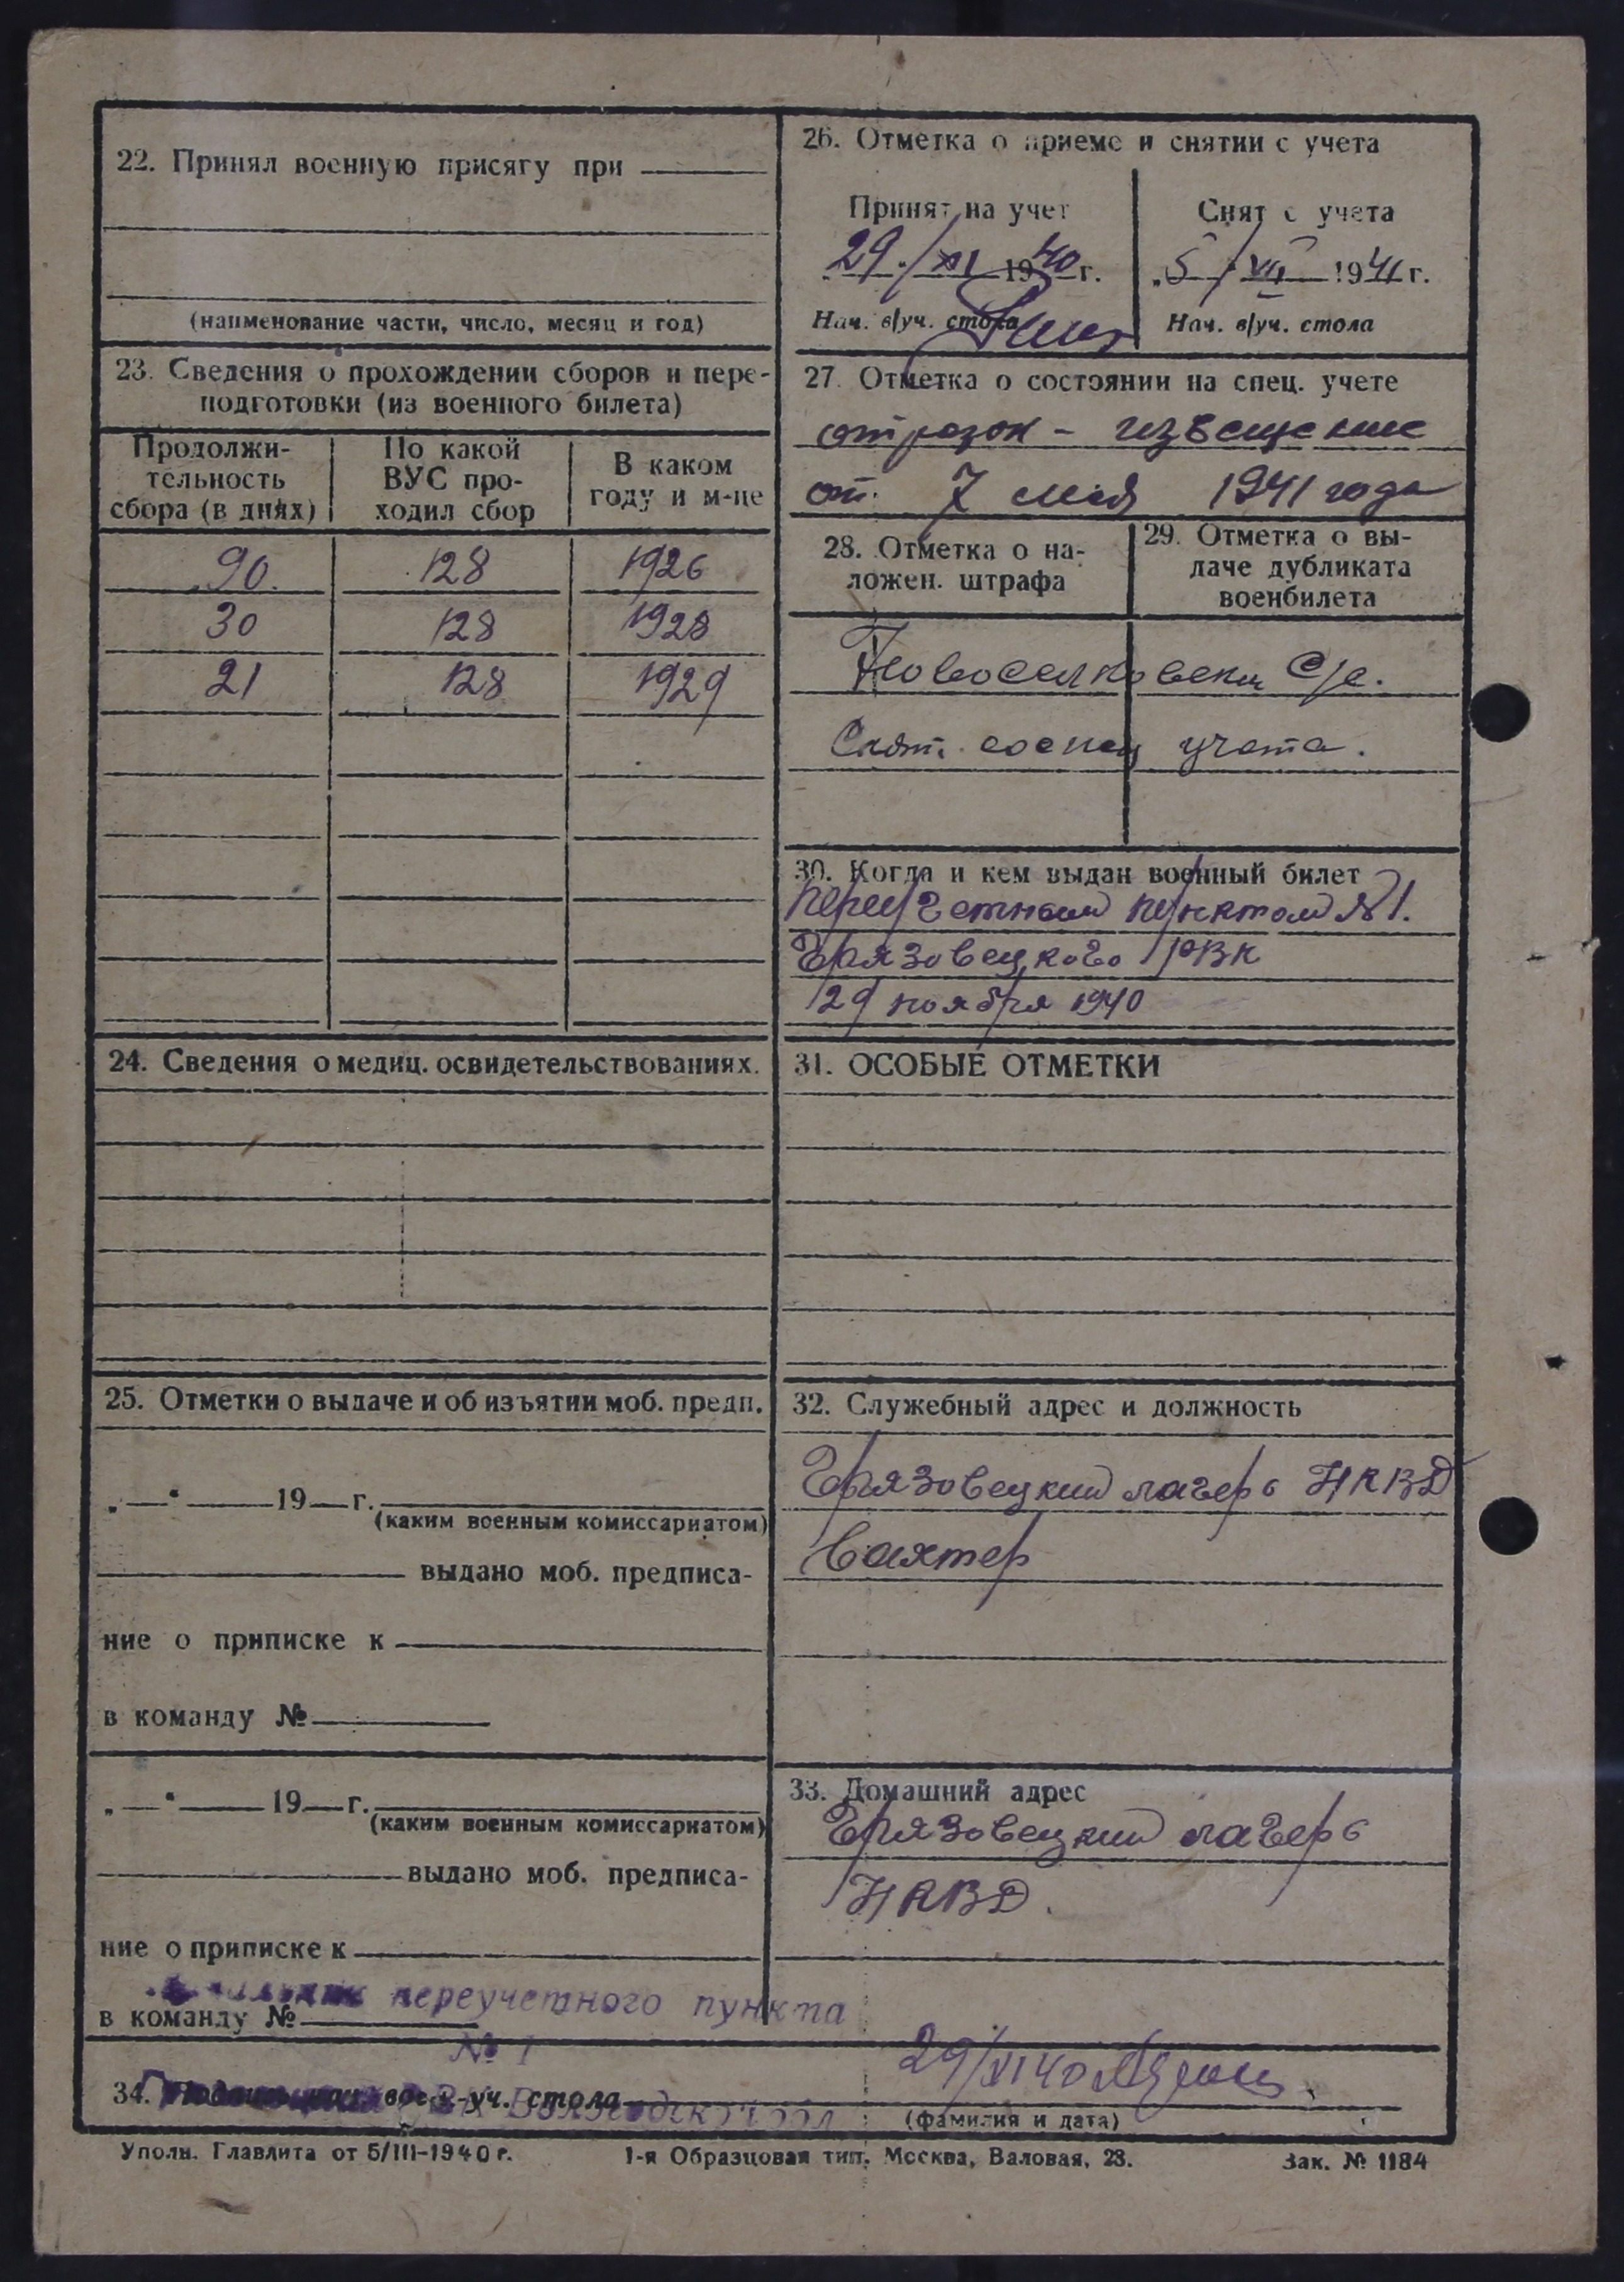 22. Принял военную присягу при
(наименование части, число, месяц и год)
23. Сведения о прохождении сборов и пере-
подготовки (из военного билета)
Продолжи-
тельность
сбора (в днях)
По какой
ВУС про-
ходил сбор
В каком
году и м-це
90. 128 1926
30 128 1928
21 128 1929
24. Сведения о медиц. освидетельствованиях.
25. Отметки о выдаче и об изъятии моб. предп.
„—“ 19—г.
(каким военным комиссариатом)
выдано моб. предписа-
ние о приписке к
в команду №
„—“ 19—г.
(каким военным комиссариатом)
выдано моб. предписа-
ние о приписке к
переучетного пункта
в команду №
№ 1
26. Отметка о приеме и снятии с учета
Принят на учет
29/XI 1940 г.
Нач. в/уч. стола
Снят с учета
„5/VII 1941 г.
Нач. в/уч. стола
27. Отметка о состоянии на спец. учете
отрезок - извещение
от. 7 мая 1941 года
28. Отметка о на-
ложен. штрафа
29. Отметка о вы-
даче дубликата
военбилета
Новоселковски С/с.
Снят. со спец учета.
30. Когда и кем выдан военный билет
Переучетным пунктом №1.
Грязовецкого РВК
29 ноября 1940
31. ОСОБЫЕ ОТМЕТКИ
32. Служебный адрес и должность
Грязовецкий лагерь НКВД
Вахтер
33. Домашний адрес
Грязовецкий лагерь
НКВД.
34. Подпись нач. воен.-уч. стола
29/XI 40
(фамилия и дата)
Уполн. Главлита от 5/III-1940 г. 1-я Образцовая тип. Москва, Валовая, 28. Зак. № 1184